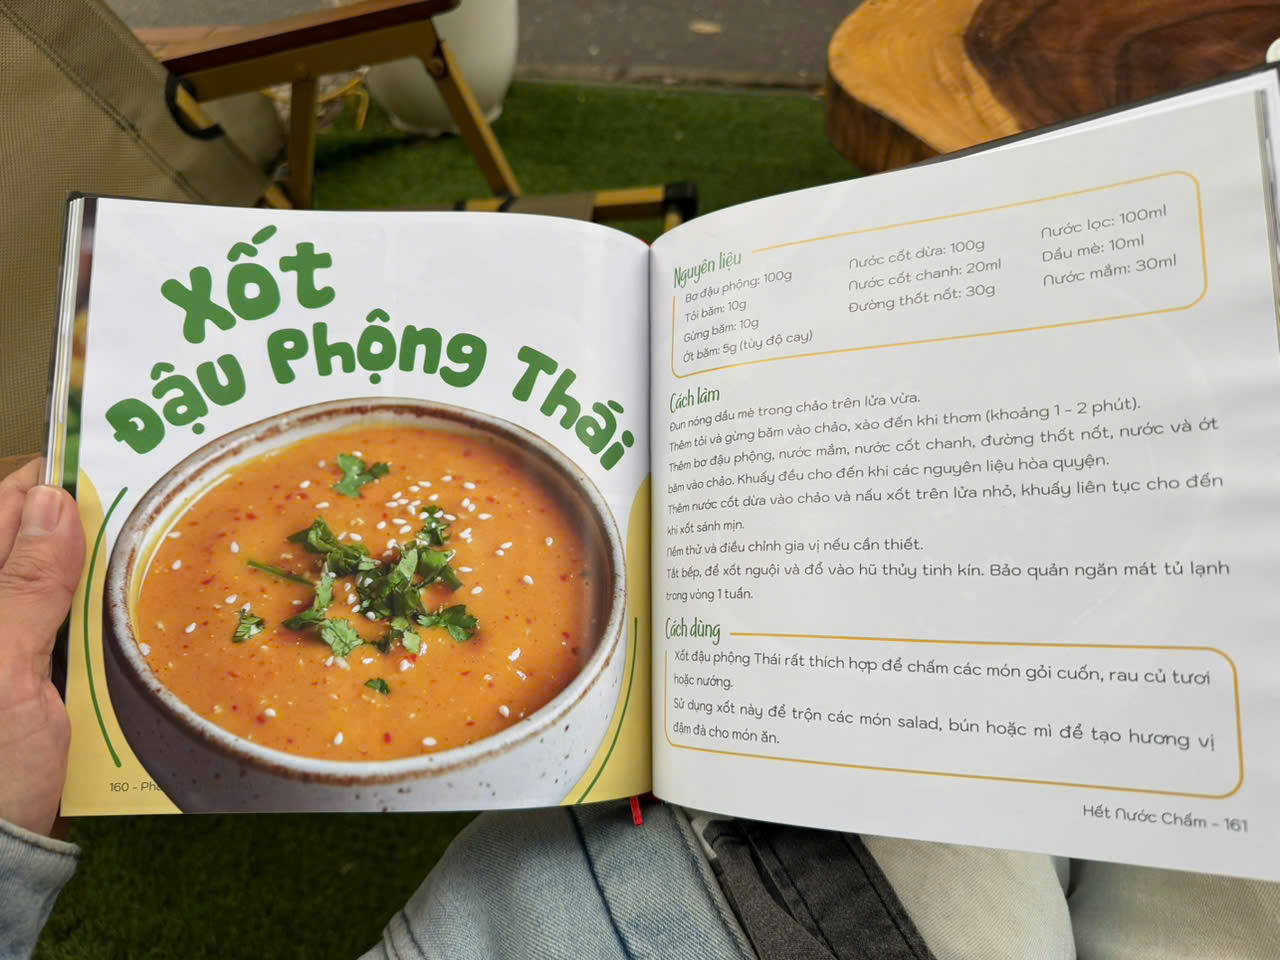 Xốt
Đậu Phộng Thái
160 - Ph
Nguyên liệu
Bơ đậu phộng: 100g
Tỏi băm: 10g
Gừng băm: 10g
Ớt băm: 5g (tùy độ cay)
Nước cốt dừa: 100g
Nước cốt chanh: 20ml
Đường thốt nốt: 30g
Nước lọc: 100ml
Dầu mè: 10ml
Nước mắm: 30ml
Cách làm
Đun nóng dầu mè trong chảo trên lửa vừa.
Thêm tỏi và gừng băm vào chảo, xào đến khi thơm (khoảng 1 - 2 phút).
Thêm bơ đậu phộng, nước mắm, nước cốt chanh, đường thốt nốt, nước và ớt
băm vào chảo. Khuấy đều cho đến khi các nguyên liệu hòa quyện.
Thêm nước cốt dừa vào chảo và nấu xốt trên lửa nhỏ, khuấy liên tục cho đến
khi xốt sánh mịn.
Nếm thử và điều chỉnh gia vị nếu cần thiết.
Tắt bếp, để xốt nguội và đổ vào hũ thủy tinh kín. Bảo quản ngăn mát tủ lạnh
trong vòng 1 tuần.
Cách dùng
Xốt đậu phộng Thái rất thích hợp để chấm các món gỏi cuốn, rau củ tươi
hoặc nướng.
Sử dụng xốt này để trộn các món salad, bún hoặc mì để tạo hương vị
đậm đà cho món ăn.
Hết Nước Chấm - 161